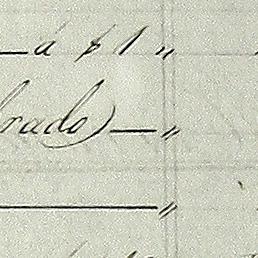 — á $ 1 "
brado) — "
— "